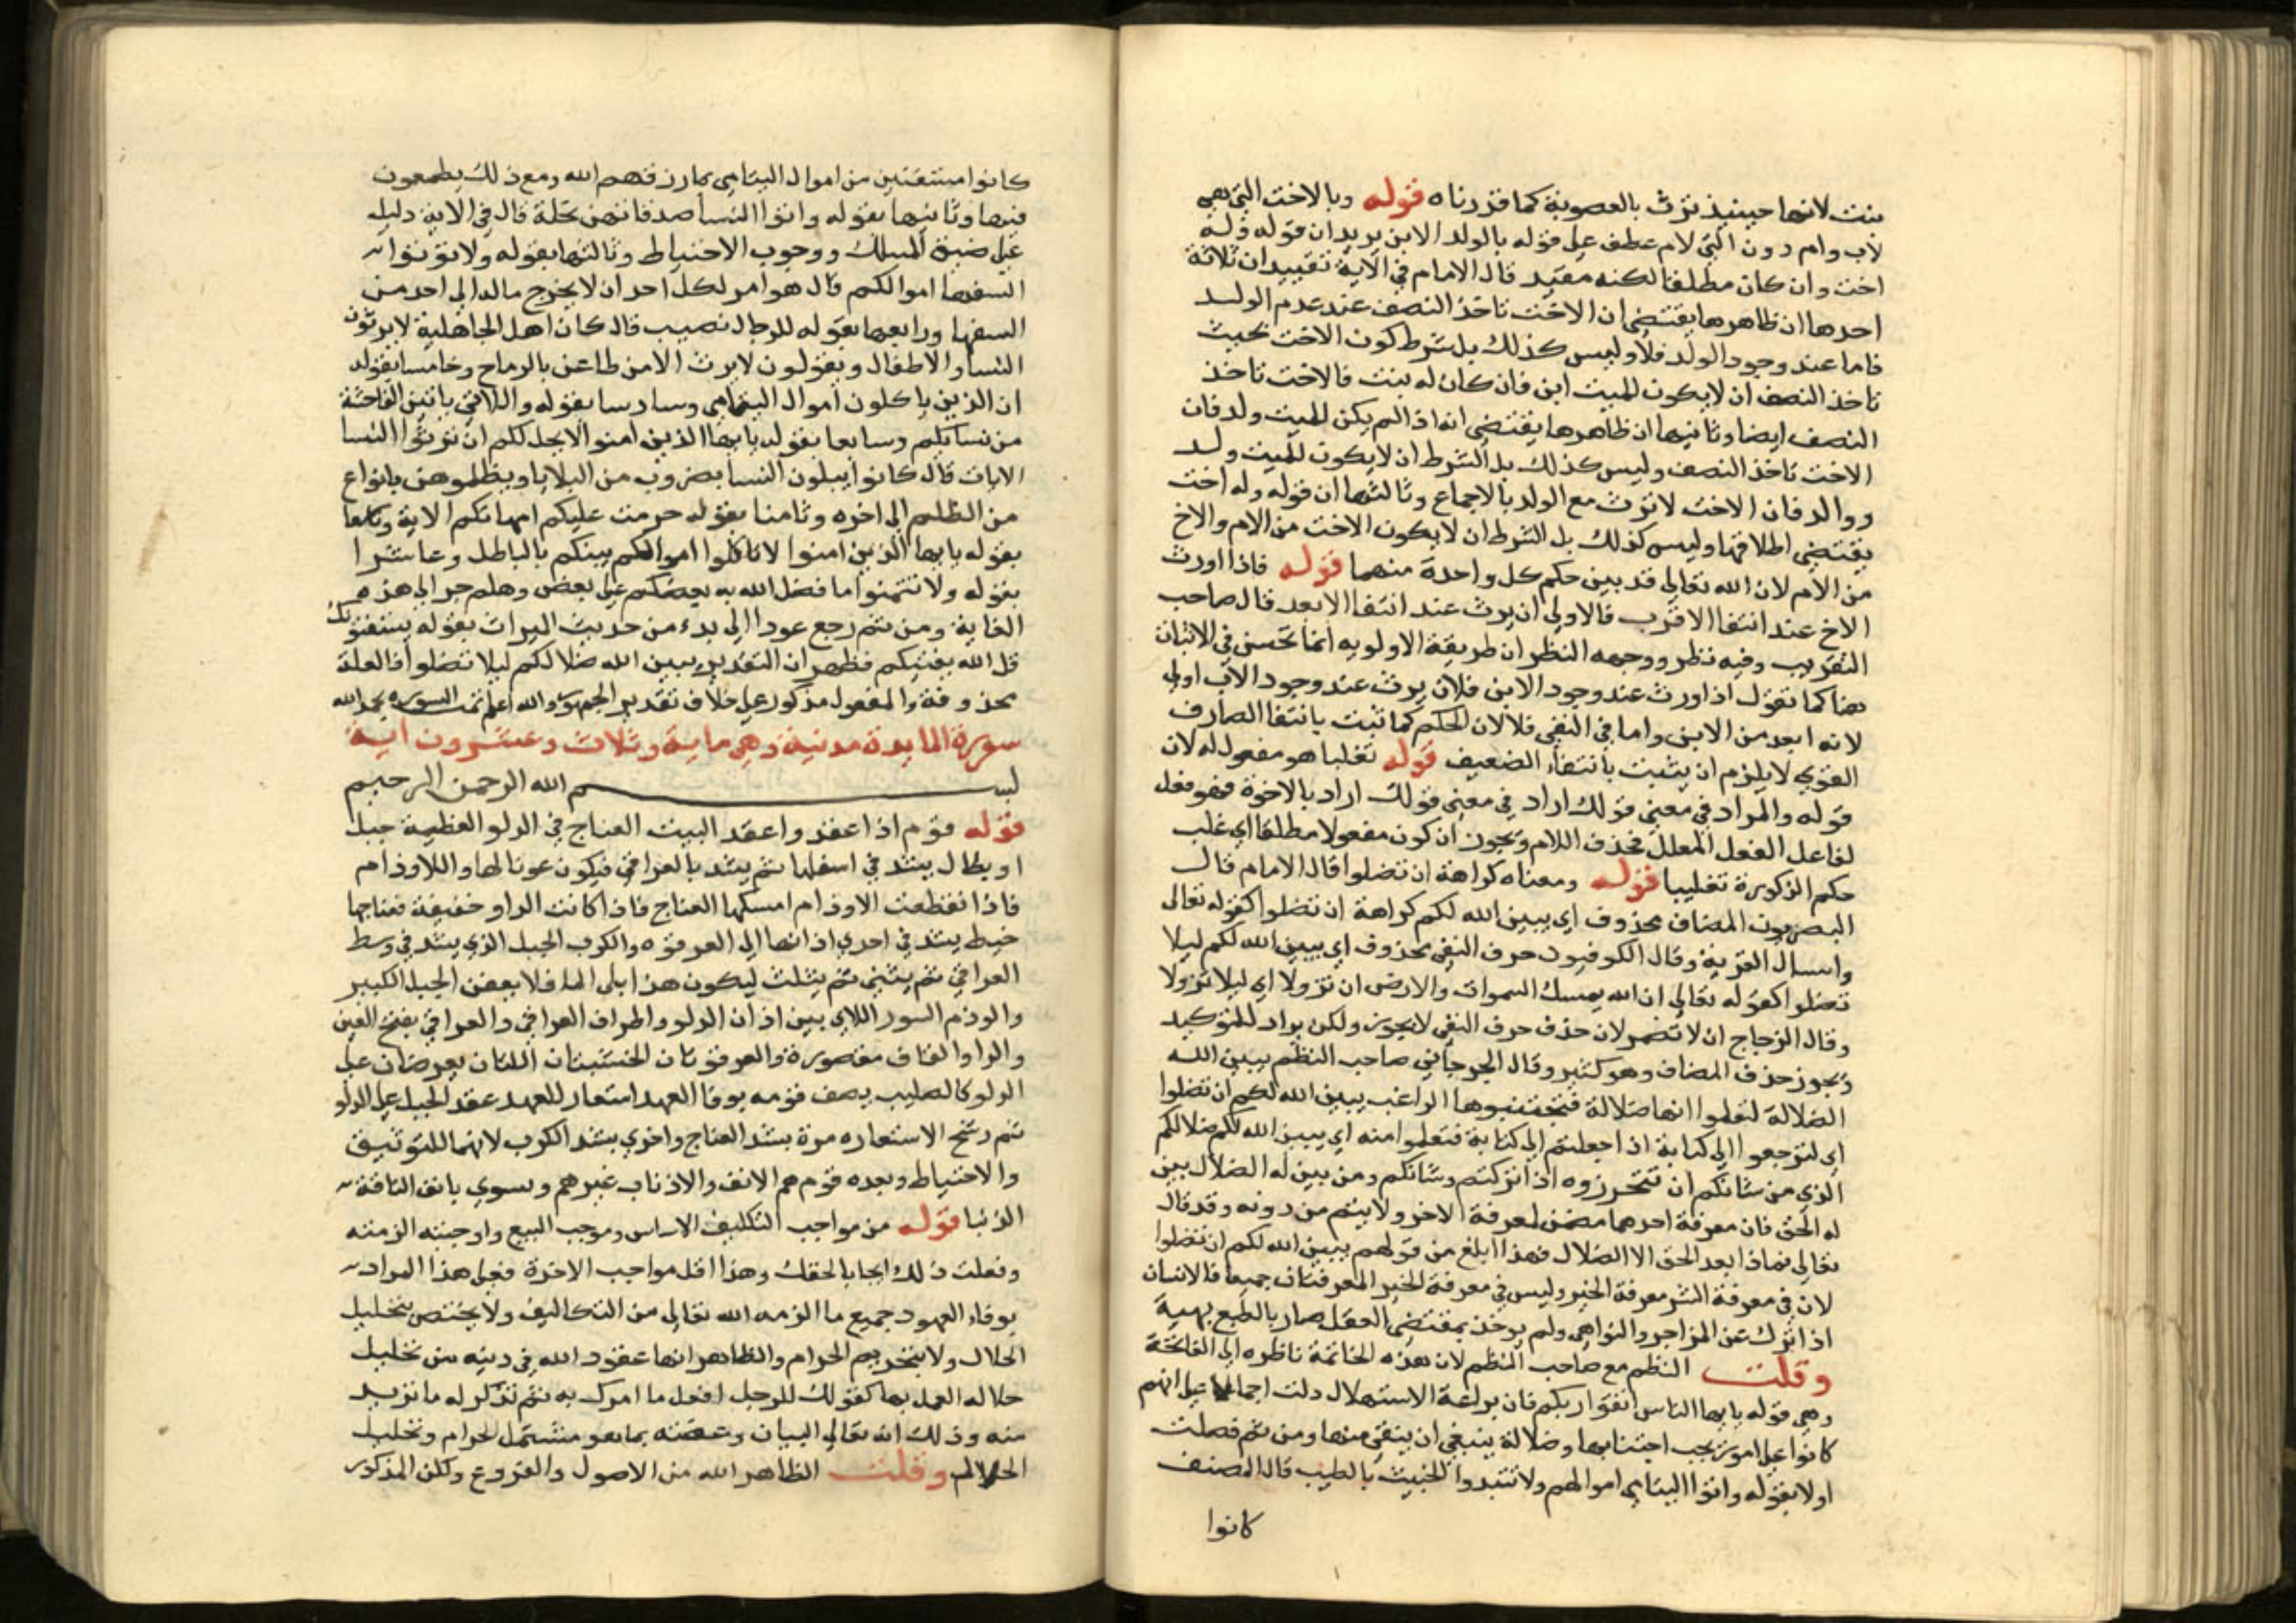 بنت لانها حينيذ ترث بالعصوبة كما قررناه قوله وبالاخت التي هي
لاب وام دون التي لام عطف على قوله بالولد الابن يريد ان قوله وله
اخت وان كان مطلقا لكنه مقيد قال الامام في الاية تقييدان ثلاثة
احدها ان ظاهرها يقتضي ان الاخت تاخذ النصف عند عدم الولد
فاما عند وجود الولد فلا وليس كذلك بل شرط كون الاخت بحيث
تاخذ النصف ان لا يكون للميت ابن فان كان له بنت فالاخت تاخذ
النصف ايضا وثانيها ان ظاهرها يقتضي انه اذا لم يكن للميت ولد فان
الاخت تاخذ النصف وليس كذلك بل الشرط ان لا يكون للميت ولد
ووالد فان الاخت لا ترث مع الولد بالاجماع وثالثها ان قوله وله اخت
يقتضي اطلاقها وليس كذلك بل الشرط ان لا يكون الاخت من الام والاخ
من الام لان الله تعالى قد بين حكم كل واحدة منهما قوله فاذا اورث
الاخ عند انتفا الاقرب فالاولى ان يرث عند انتفا الابعد قال صاحب
التقريب وفيه نظر ووجهه النظر ان طريقة الاولويه انما تحسن في الاثبات
هنا كما تقول اذا ورث عند وجود الابن فلان يرث عند وجود الاب اولى
لانه ابعد من الابن واما في النفي فلا لان الحكم كما ثبت بانتفا الصارف
القوي لا يلزم ان يثبت بانتفاء الضعيف قوله تغليبا هو مفعول له لان
قوله والمراد في معنى قولك اراد في معنى قولك اراد بالاخوة فهو فعل
لفاعل الفعل المعلل فحذف اللام ويجوز ان كون مفعولا مطلقا اي غلب
حكم الذكورة تغليبا قوله ومعناه كراهة ان تضلوا قال الامام قال
البصريون المضاف محذوف اي يبين الله لكم كراهة ان تضلوا كقوله تعالى
واسال القرية وقال الكوفيون حرف النفي محذوف اي يبين الله لكم ليلا
تضلوا كقوله تعالى ان الله يمسك السموات والارض ان تزولا اي ليلا تزولا
وقال الزجاج ان لا تضمر لان حذف حرف النفي لا يجوز ولكن يراد للتوكيد
ويجوز حذف المضاف وهو كثير وقال الجرجاني صاحب النظم يبين الله
الضلالة لتعلموا انها ضلالة فتجتنبوها الراغب يبين الله لكم ان تضلوا
اي لترجعوا الى كتابه اذا جعلتم الى كتابة فتعلموا منه اي يبين الله لكم ضلالكم
الذي من شانكم ان تتحرزوه اذا تركتم وشانكم ومن بين له الضلال بين
له الحق فان معرفة احدهما مضمن لمعرفة الاخر ولا يتم من دونه وقد قال
تعالى فماذا بعد الحق الا الضلال فهذا ابلغ من قولهم يبين الله لكم ان تضلوا
لان في معرفة الشر معرفة الخير وليس في معرفة الخير المعرفتان جميعا فالانسان
اذا ترك عن المزاجر والنواهي ولم يوخذ بمقتضى العقل صار بالطبع بهيمة
وقلت النظم مع صاحب النظم لان هذه الخاتمة ناظره الى الفاتحة
وهي قوله يا ايها الناس اتقوا ربكم فان براعة الاستهلال دلت اجمالا على انهم
كانوا على امور يجب اجتنابها وضلالة ينبغي ان يتقى منها ومن ثم فصلت
اولا بقوله واتوا اليتامى اموالهم ولا تتبدوا الخبيث بالطيب قال المصنف
كانوا
كانوا منتفعين من اموال اليتامى بما رزقهم الله ومع ذلك يطمعون
فيها وثانيها بقوله واتوا النسا صدقاتهن نحلة قال في الاية دليله
على ضيق المسلك ووجوب الاحتياط وثالثها بقوله ولا توتوا
السفها اموالكم قال هو امر لكل احد ان لا يخرج ماله الى احد من
السفها ورابعها بقوله للرجال نصيب قال كان اهل الجاهلية لا يورثون
النسا والاطفال ويقولون لا يرث الا من طاعن بالرماح وخامسا بقوله
ان الذين ياكلون اموال اليتامى وسادسا بقوله واللاتي ياتين الفاحشة
من نسايكم وسابعا بقوله يا ايها الذين امنوا لا يحل لكم ان ترثوا النسا
الايات قال كانوا يبلون النسا بضروب من البلايا ويظلموهن بانواع
من الظلم الى اخره وثامنا بقوله حرمت عليكم امهاتكم الاية وتاسعا
بقوله يا ايها الذين امنوا لا تاكلوا اموالكم بينكم بالباطل وعاشرا
بقوله ولا تتمنوا ما فضل الله به بعضكم على بعض وهلم جرا الى هذه
الغاية ومن ثم رجع عودا الى بدء من حديث الميراث بقوله يستفتونك
قل الله يفتيكم فظهر ان التقدير يبين الله ضلالكم ليلا تضلوا فالعلة
محذوفة والمفعول مذكور على خلاف تقدير الجمهور والله اعلم تمت السوره بحمد الله
سورة المايدة مدنية وهي ماية وثلاث وعشرون اية
بسم الله الرحمن الرحيم
قوله قوم اذا عقدوا عقد البيت العناج في الدلو العظيمة حبل
او بطان يشد في اسفلها ثم يشد بالعراقي فيكون عونا لها واللاوذام
فاذا انقطعت الاوذام امسكها العناج فاذا كانت الدلو خفيفة فعناجها
خيط يشد في احدي اذانها الى العرقوه والكرب الحبل الذي يشد في وسط
العراقي ثم يثنى ثم يثلث ليكون هذا يلي الما فلا يعفن الحبل الكبير
والوذم السيور اللاي بين اذان الدلو واطراف العراقي والعراقي بفتح العين
والرا والقاف مقصورة والعرقوتان الخشبتان اللتان يعرضان على
الدلو كالصليب يصف قومه بوفا العهد استعار للعهد عقد الحبل على الدلو
ثم رشح الاستعاره مرة بشد العناج واخري بشد الكرب لانهما للتوثيق
والاحتياط وبعده قوم هم الانف والاذناب غيرهم ويسوي بانف الناقة
الذنبا قوله من مواجب التكليف الاساس وموجب البيع واوجبته الزمته
وفعلت ذلك ايجابا لحقك وهذا اقل مواجب الاخوة فعلى هذا المراد
بوفاء العهود جميع ما الزمه الله تعالى من التكاليف ولا يختص بتحليل
الحلال ولا بتحريم الحرام والظاهر انها عقود الله في دينه من تحليل
حلاله العمل بها كقولك للرجل افعل ما امرك به ثم تذكر له ما تريد
منه وذلك انه تعالى البيان وعقبته بما هو مشتمل الحرام وتحليل
الحلال وقلت الظاهر الله من الاصول والفروع ولكن المذكور